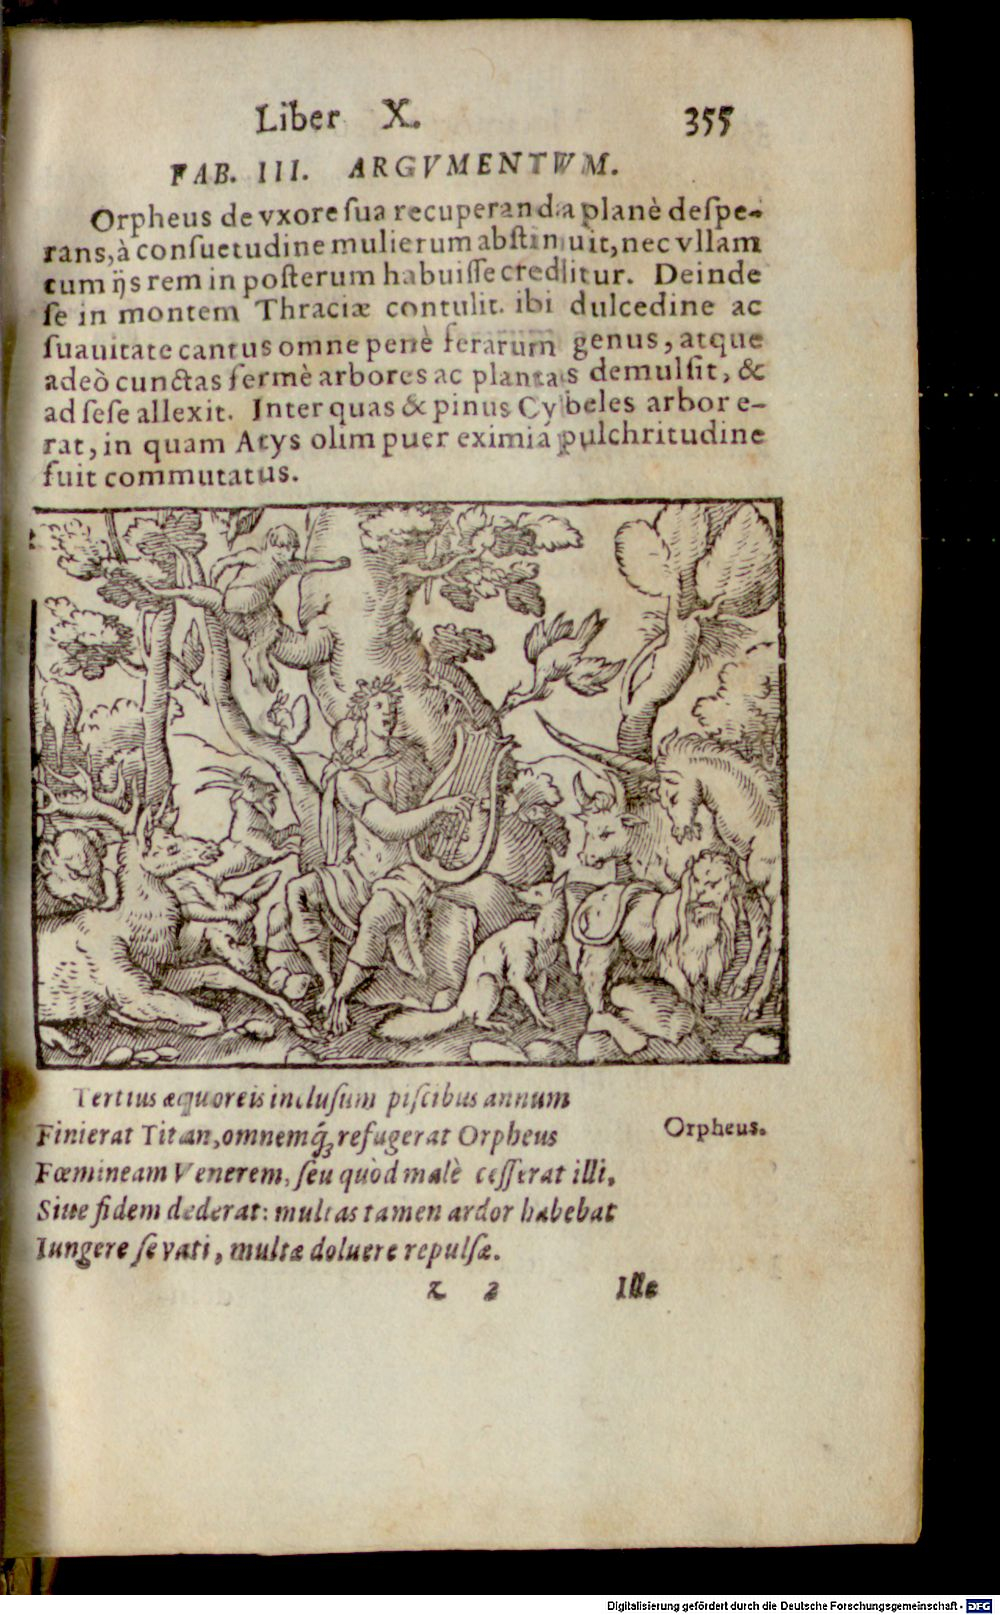 Liber X. 355
FAB. III. ARGVMENTVM.
Orpheus de vxore ſua recuperanda planè deſpe-
rans, à conſuetudine mulierum abſtinuit, nec vllam
cum ijs rem in poſterum habuiſſe creditur. Deinde
ſe in montem Thraciæ contulit. ibi dulcedine ac
ſuauitate cantus omne penè ferarum genus, atque
adeò cunctas fermè arbores ac plantas demulſit, &
ad ſeſe allexit. Inter quas & pinus Cybeles arbor e-
rat, in quam Atys olim puer eximia pulchritudine
fuit commutatus.
Tertius æquoreis incluſum piſcibus annum
Finierat Titan, omnemq́; refugerat Orpheus
Orpheus.
Fœmineam Venerem, ſeu quòd malè ceſſerat illi,
Siue fidem dederat: multas tamen ardor habebat
Iungere ſe vati, multæ doluere repulſæ.
z 2 Ille
Digitalisierung gefördert durch die Deutsche Forschungsgemeinschaft - DFG